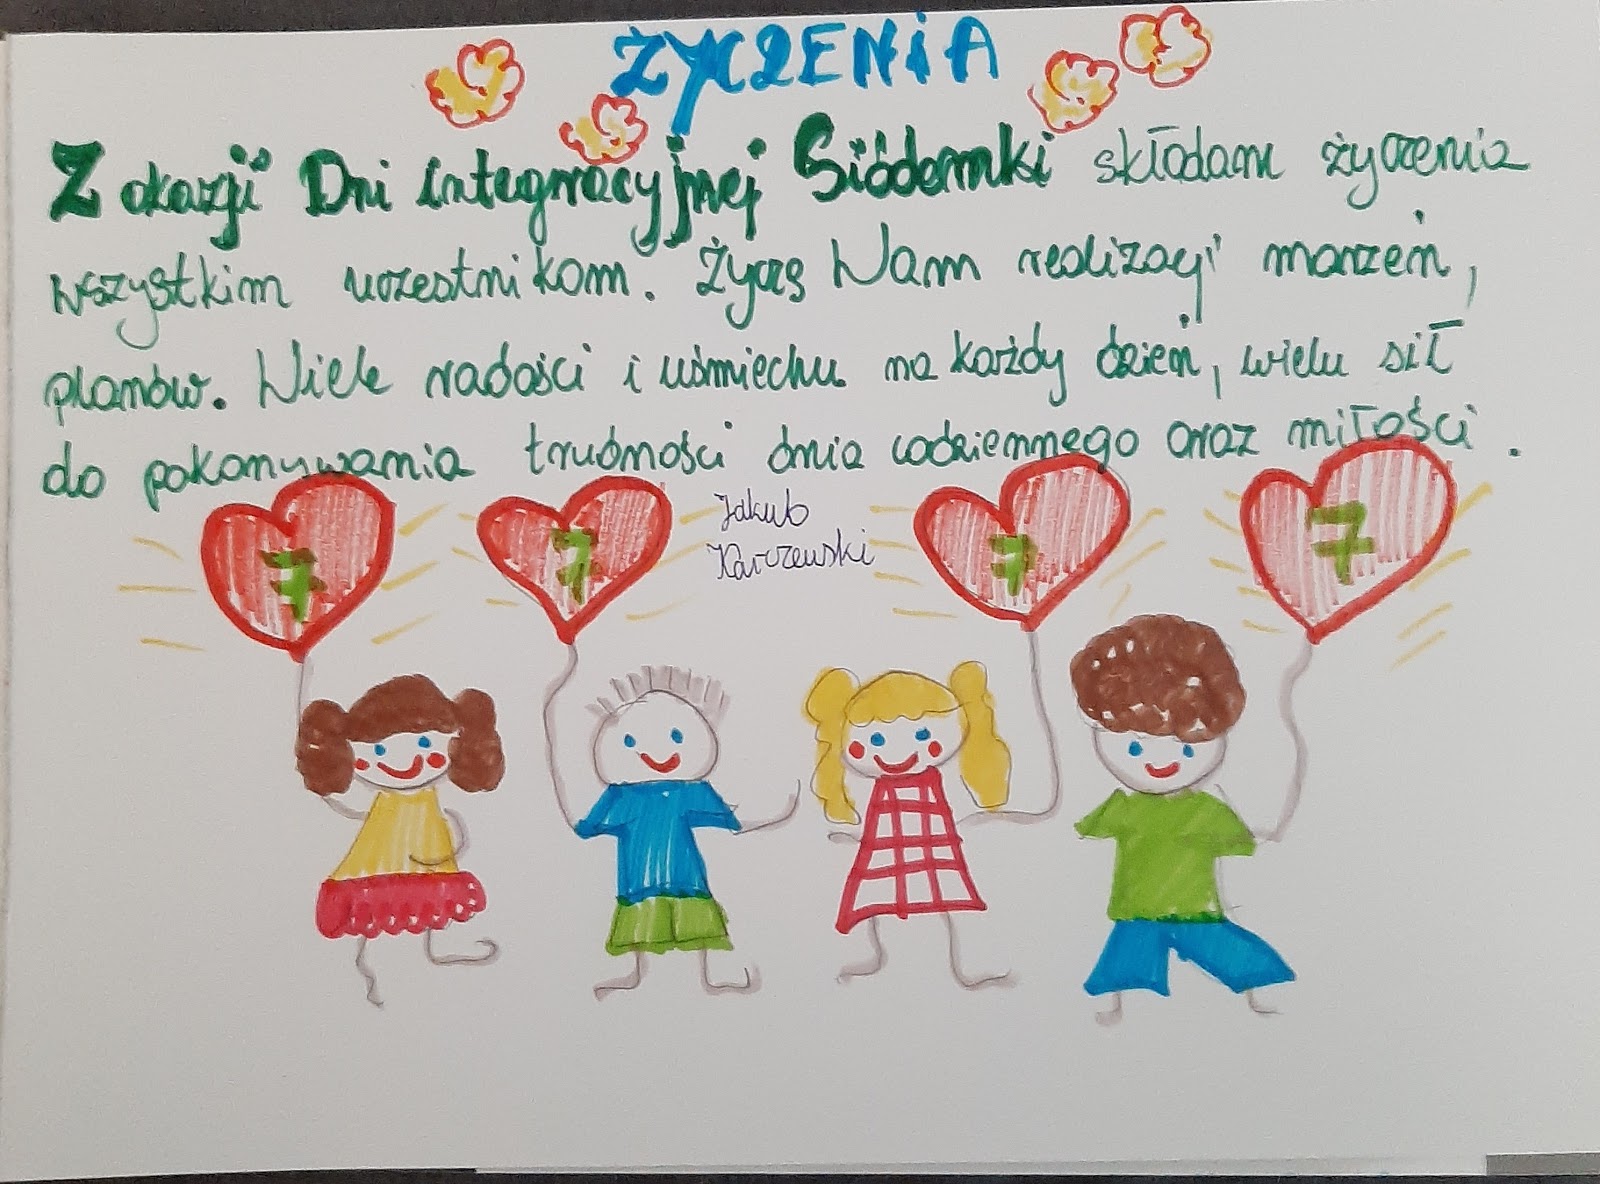 ŻYCZENIA
Z okazji Dni integracyjnej Siódemki składam życzenia
wszystkim uczestnikom. Życzę Wam realizacji marzeń,
planów. Wiele radości i uśmiechu na każdy dzień, wielu sił
do pokonywania trudności dnia codziennego oraz miłości.
Jakub
Karczewski
7 7 7 7